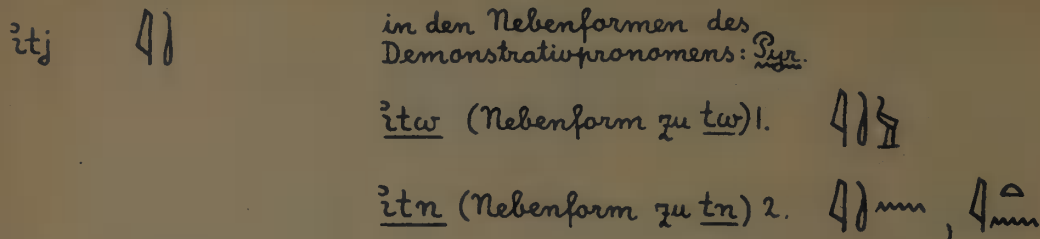 ꞽtj 𓇋𓍘 in den Nebenformen des
Demonstrativpronomens: Pyr.
ꞽtw (Nebenform zu tw) 1. 𓇋𓍘
ꞽtn (Nebenform zu tn) 2. 𓇋𓍘𓈖, 𓇋𓏏𓈖